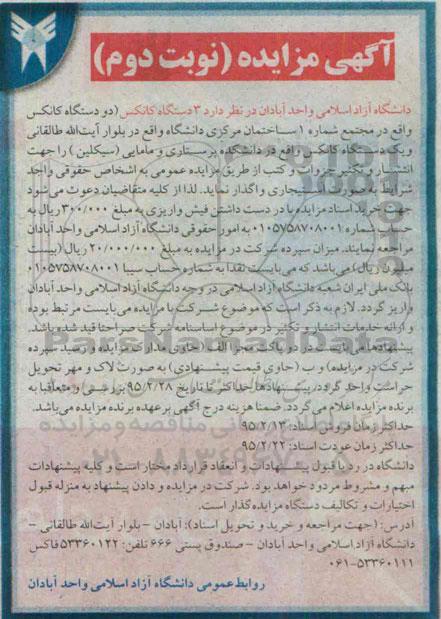 آگهی مزایده (نوبت دوم)
دانشگاه آزاد اسلامی واحد آبادان در نظر دارد ۳ دستگاه کانکس (دو دستگاه کانکس
واقع در مجتمع شماره ۱ ساختمان مرکزی دانشگاه واقع در بلوار آیت‌الله طالقانی
و یک دستگاه کانکس واقع در دانشکده پرستاری و مامایی (سیکلین) را جهت
انتشار و تکثیر جزوات و کتب از طریق مزایده عمومی به اشخاص حقوقی واجد
شرایط به صورت استیجاری واگذار نماید. لذا از کلیه متقاضیان دعوت می‌شود
جهت خرید اسناد مزایده با در دست داشتن فیش واریزی به مبلغ ۳۰۰/۰۰۰ ریال به
حساب شماره ۰۱۰۵۷۵۸۷۰۸۰۰۱ به امور حقوقی دانشگاه آزاد اسلامی واحد آبادان
مراجعه نمایند. میزان سپرده شرکت در مزایده به مبلغ ۲۰/۰۰۰/۰۰۰ ریال (بیست
میلیون ریال) می باشد که می بایست نقدا به شماره حساب سیبا ۰۱۰۵۷۵۸۷۰۸۰۰۱
بانک ملی ایران شعبه دانشگاه آزاد اسلامی در وجه دانشگاه آزاد اسلامی واحد آبادان
واریز گردد. لازم به ذکر است که موضوع شرکت با مزایده می‌بایست مرتبط بوده
و ارائه خدمات انتشار و تکثیر در موضوع اساسنامه شرکت صراحتا قید شده باشد.
پیشنهادها می بایست در دو پاکت مجزا الف (حاوی مدارک مزایده و رسید سپرده
شرکت در مزایده) و ب (حاوی قیمت پیشنهادی) به صورت لاک و مهر تحویل
حراست واحد گردد. پیشنهادها حداکثر تا تاریخ ۹۵/۲/۲۸ بررسی و متعاقبا به
برنده مزایده اعلام می‌گردد. ضمنا هزینه درج آگهی بر عهده برنده مزایده می‌باشد.
حداکثر زمان فروش اسناد: ۹۵/۲/۱۳
حداکثر زمان عودت اسناد: ۹۵/۲/۲۲
دانشگاه در رد یا قبول پیشنهادات و انعقاد قرارداد مختار است و کلیه پیشنهادات
مبهم و مشروط مردود خواهد بود. شرکت در مزایده و دادن پیشنهاد به منزله قبول
اختیارات و تکالیف دستگاه مزایده گذار است.
آدرس: (جهت مراجعه و خرید و تحویل اسناد): آبادان - بلوار آیت‌الله طالقانی -
دانشگاه آزاد اسلامی واحد آبادان - صندوق پستی ۶۶۶ تلفن: ۵۳۳۶۰۱۲۲ فاکس
۰۶۱-۵۳۳۶۰۱۱۱
روابط عمومی دانشگاه آزاد اسلامی واحد آبادان
ParsNamadData